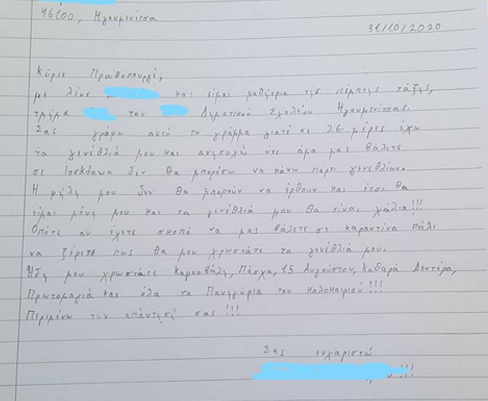 46100, Ηγουμενίτσα
31/10/2020
Κύριε Πρωθυπουργέ,
με λένε και είμαι μαθήτρια της πέμπτης τάξης,
τμήμα του Δημοτικού Σχολείου Ηγουμενίτσας.
Σας γράφω αυτό το γράμμα γιατί σε 26 μέρες έχω
τα γενέθλιά μου και ανησυχώ ότι άμα μας βάλετε
σε lockdown δεν θα μπορέσω να κάνω πάρτι γενεθλίων.
Η φίλες μου δεν θα μπορούν να έρθουν και έτσι θα
είμαι μόνη μου και τα γενέθλιά μου θα είναι χάλια!!!
Οπότε αν έχετε σκοπό να μας βάλετε σε καραντίνα πάλι
να ξέρετε πως θα μου χρωστάτε τα γενέθλιά μου.
Ήδη μου χρωστάτε Καρναβάλι, Πάσχα, 15 Αυγούστου, Καθαρά Δευτέρα,
Πρωτομαγιά και όλα τα Πανηγύρια του καλοκαιριού!!!
Περιμένω την απάντησή σας!!!
Σας ευχαριστώ
!!!